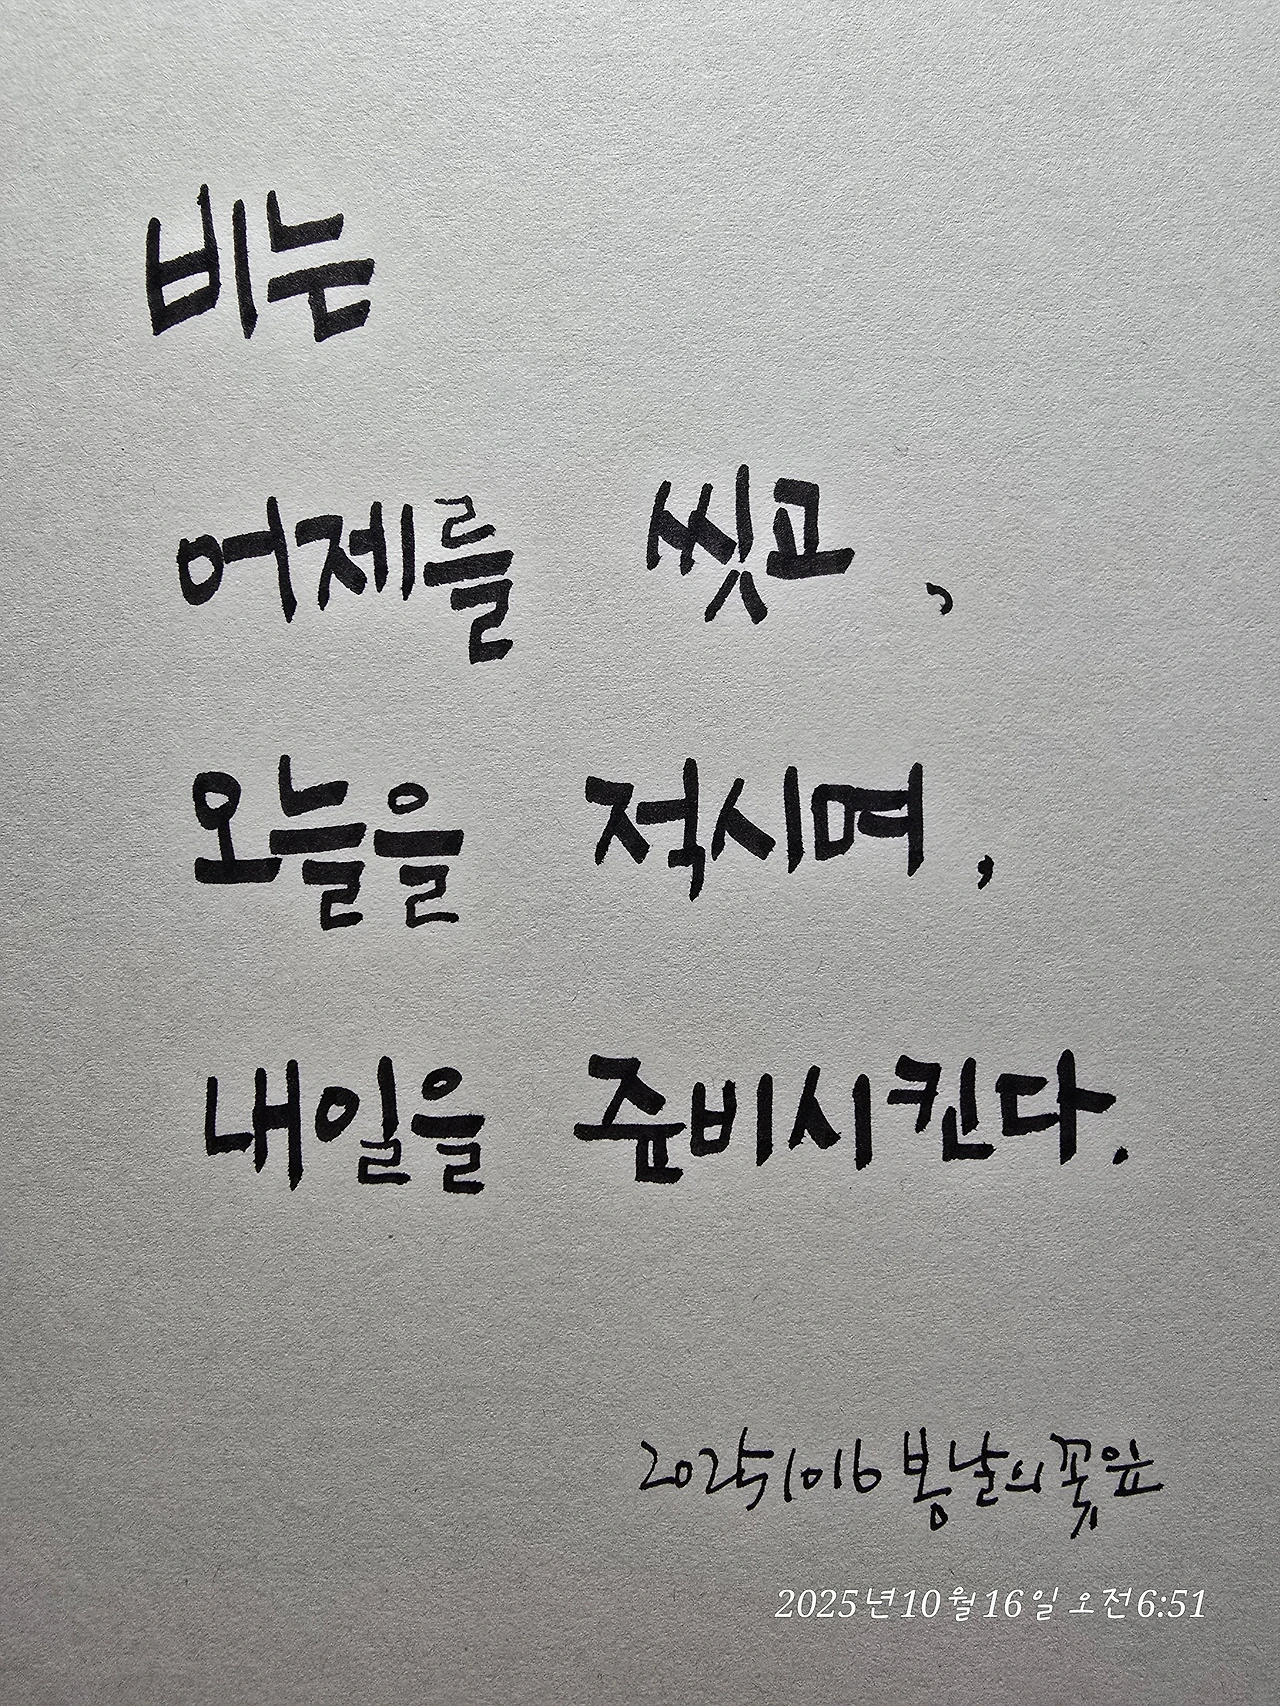 비는
어제를 씻고,
오늘을 적시며,
내일을 준비시킨다.
20251016 봄날의꽃잎
2025년10월16일 오전6:51